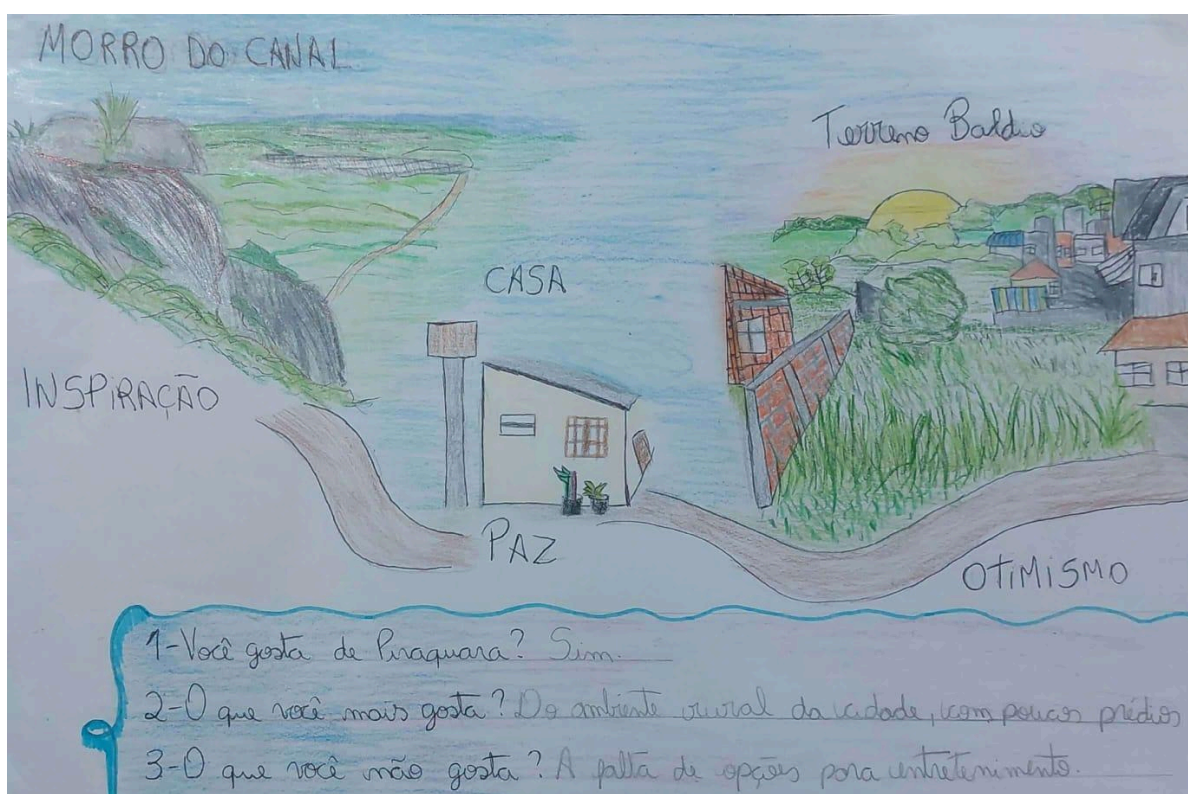 MORRO DO CANAL
Terreno Baldio
CASA
INSPIRAÇÃO
PAZ
OTIMISMO
1-Você gosta de Piraquara? Sim.
2-O que você mais gosta? Do ambiente rural da cidade, com poucos prédios
3-O que você não gosta? A falta de opções para entretenimento.